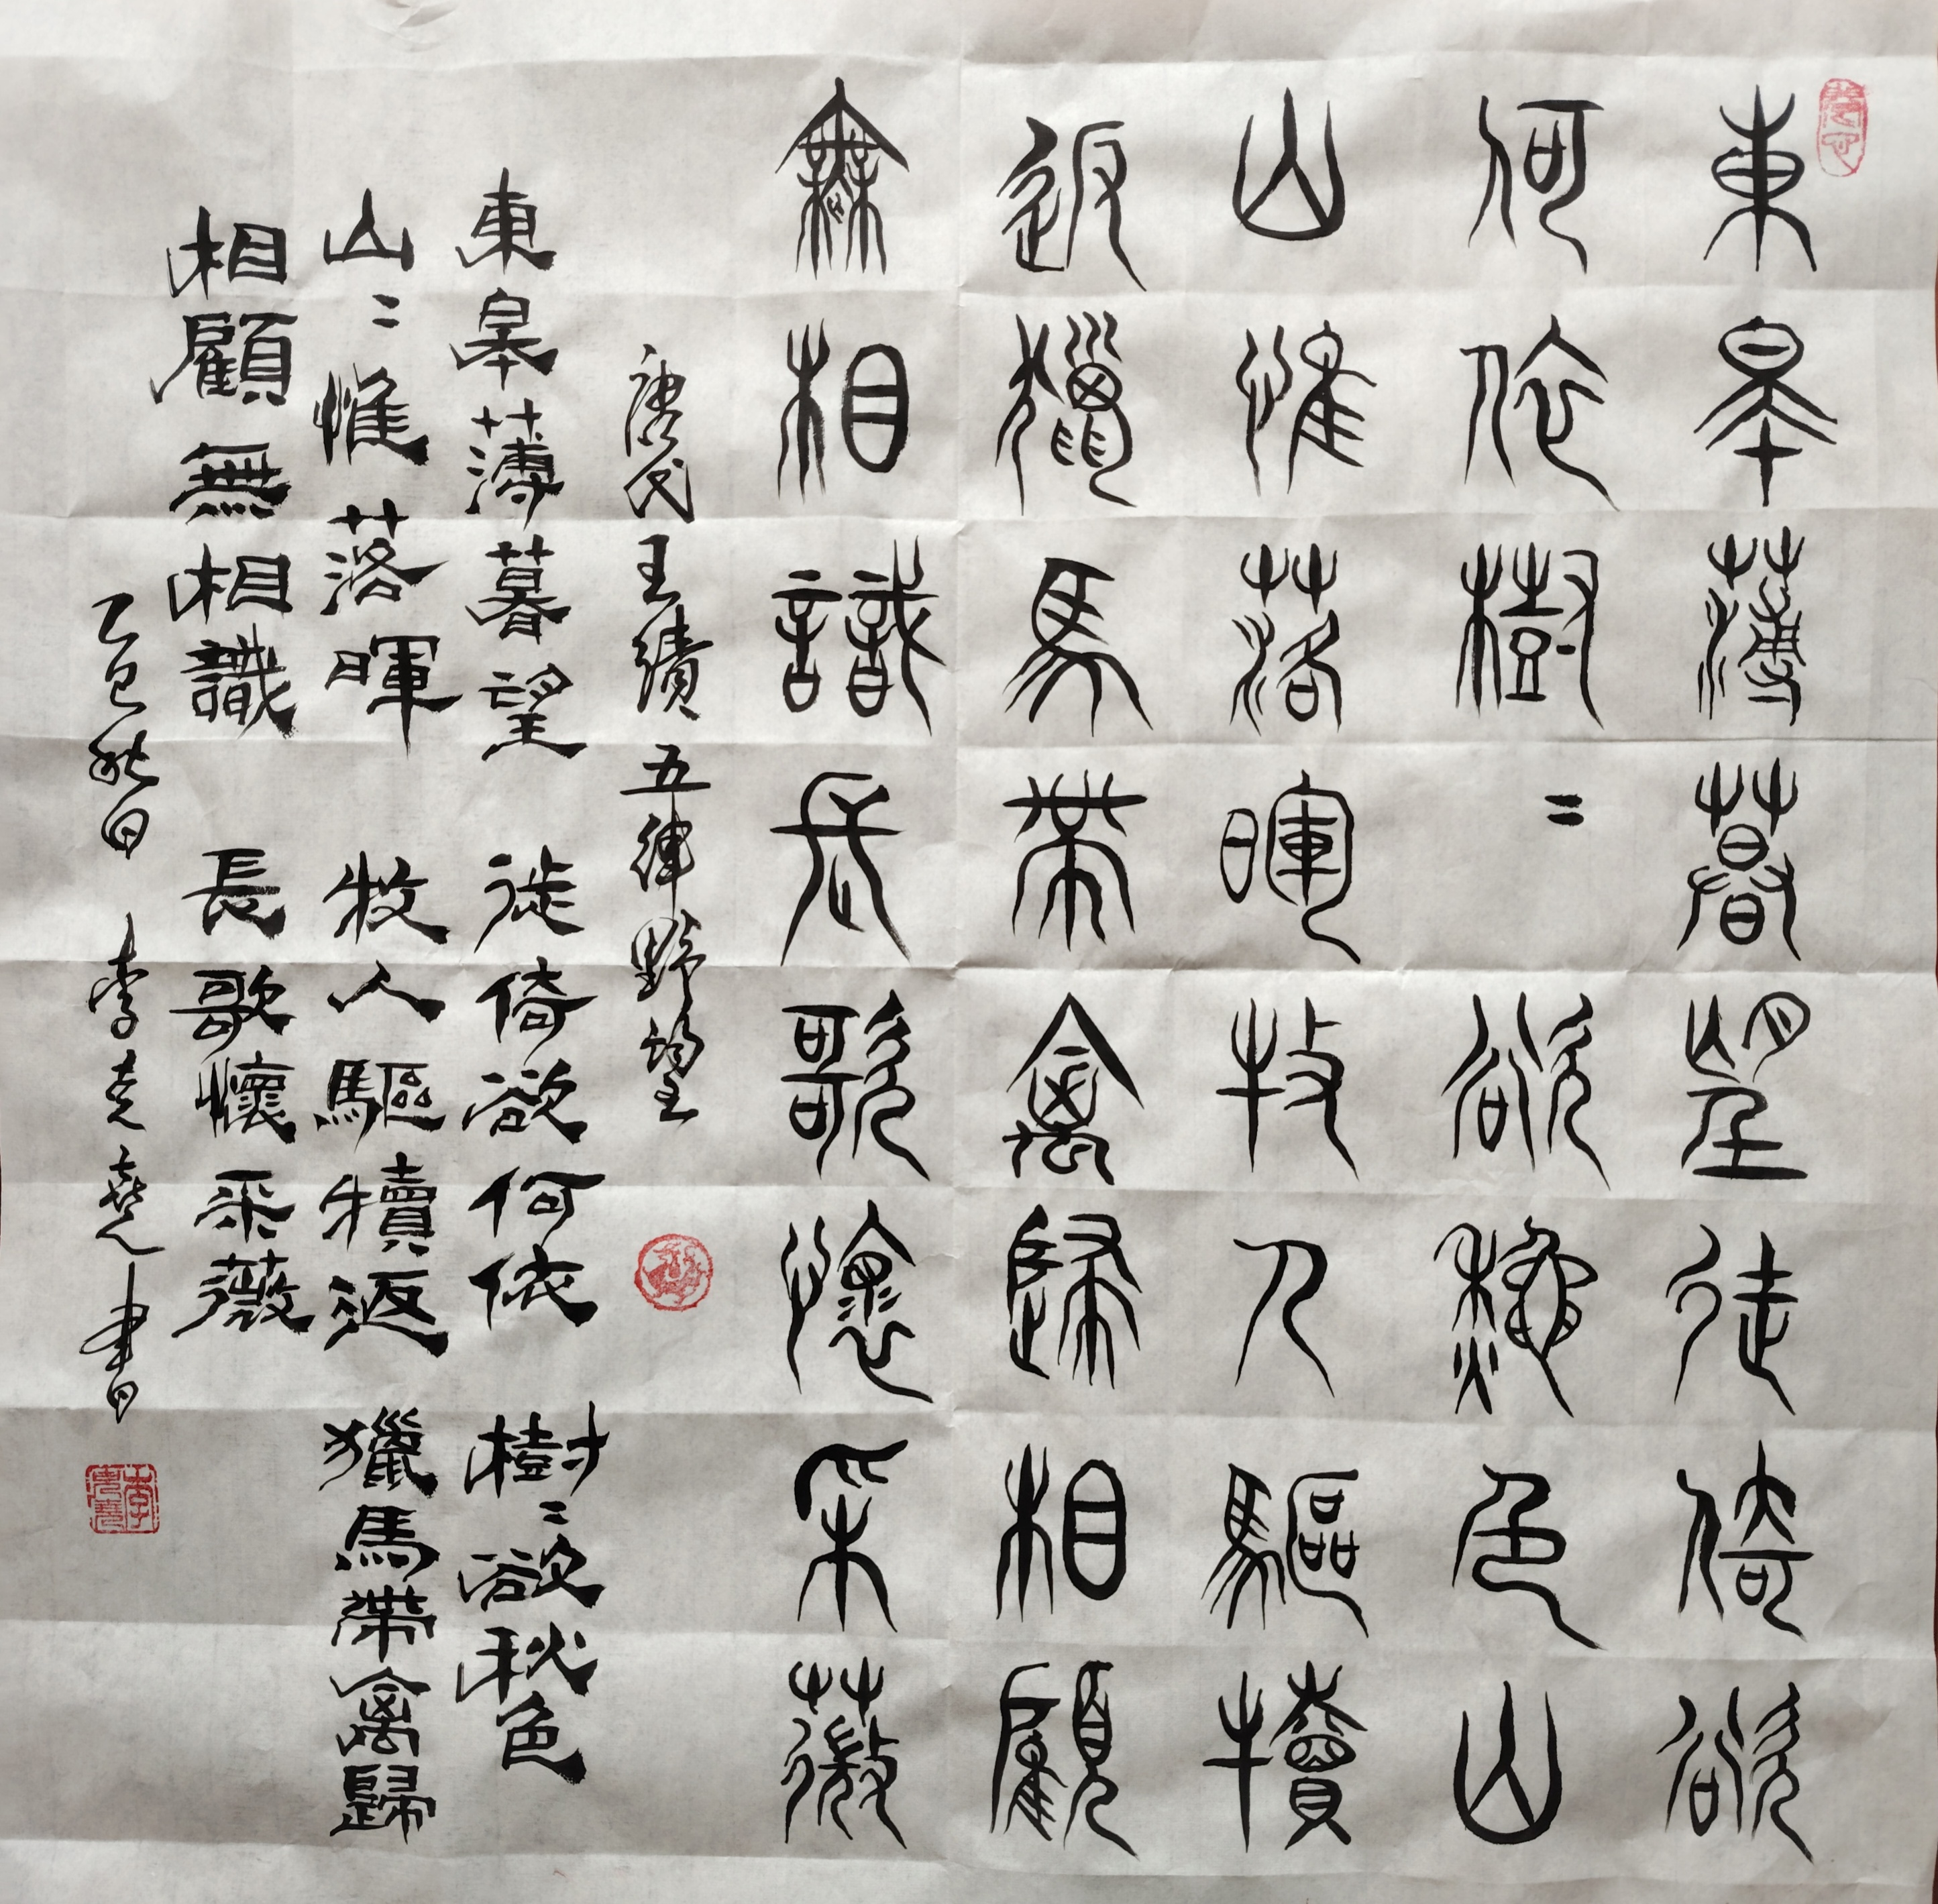 東皋薄暮望徒倚欲
何依樹〻欲秋色山
山惟落暉牧人驅犢
返獵馬帶禽歸相顧
無相識長歌懷采薇
唐代王績五律野望
東皋薄暮望 徒倚欲何依 樹〻欲秋色
山〻惟落暉 牧人驅犢返 獵馬帶禽歸
相顧無相識 長歌懷采薇
乙巳秋日 李克堯書